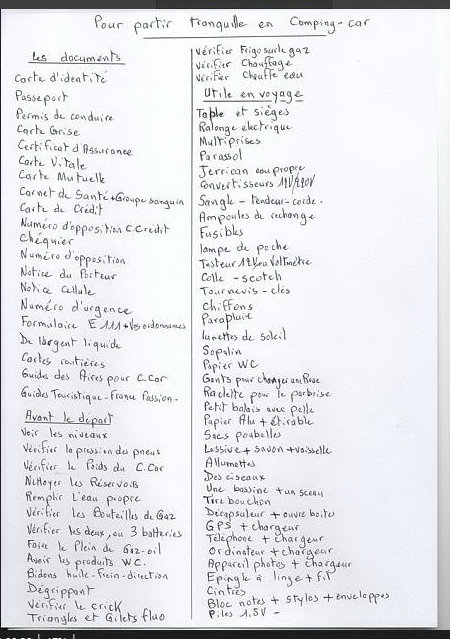 Pour partir tranquille en Camping-car
Les documents
Carte d'identité
Passeport
Permis de conduire
Carte Grise
Certificat d'Assurance
Carte Vitale
Carte Mutuelle
Carnet de Santé + Groupe sanguin
Carte de Crédit
Numéro d'opposition C.Crédit
Chéquier
Numéro d'opposition
Notice du Porteur
Notice Cellule
Numéro d'urgence
Formulaire E 111 + les ordonnances
De l'argent liquide
Cartes routières
Guide des Aires pour C.Car
Guides Touristique - France Passion.
Avant le départ
Voir les niveaux
Vérifier la pression des pneus
Vérifier le Poids du C.Car
Nettoyer les Réservoirs
Remplir l'eau propre
Vérifier les Bouteilles de Gaz
Vérifier les deux, ou 3 batteries
Faire le Plein de Gaz-oil
Avoir les produits W.C.
Bidons huile-frein-direction
Dégrippant
Vérifier le crick
Triangles et Gilets fluo
Vérifier Frigo sur le gaz
Vérifier Chauffage
Vérifier Chauffe eau
Utile en voyage
Table et sièges
Ralonge électrique
Multiprises
Parassol
Jerrican eau propre
Convertisseurs 12V/220V
Sangle - tendeur - corde.
Ampoules de rechange
Fusibles
lampe de poche
Testeur 12V ou Voltmètre
Colle - scotch
Tournevis - clés
Chiffons
Parapluie
lunettes de soleil
Sopalin
Papier WC
Gants pour changer une Roue
Raclette pour le parbrise
Petit balais avec pelle
Papier Alu + étirable
Sacs poubelles
Lessive + savon + vaisselle
Allumettes
Des ciseaux
Une bassine + un sceau
Tire bouchon
Décapsuleur + ouvre boite
GPS + chargeur
Téléphone + chargeur
Ordinateur + chargeur
Appareil photos + chargeur
Epingle à linge + fil
Cintres
Bloc notes + stylos + enveloppes
Piles 1.5V -